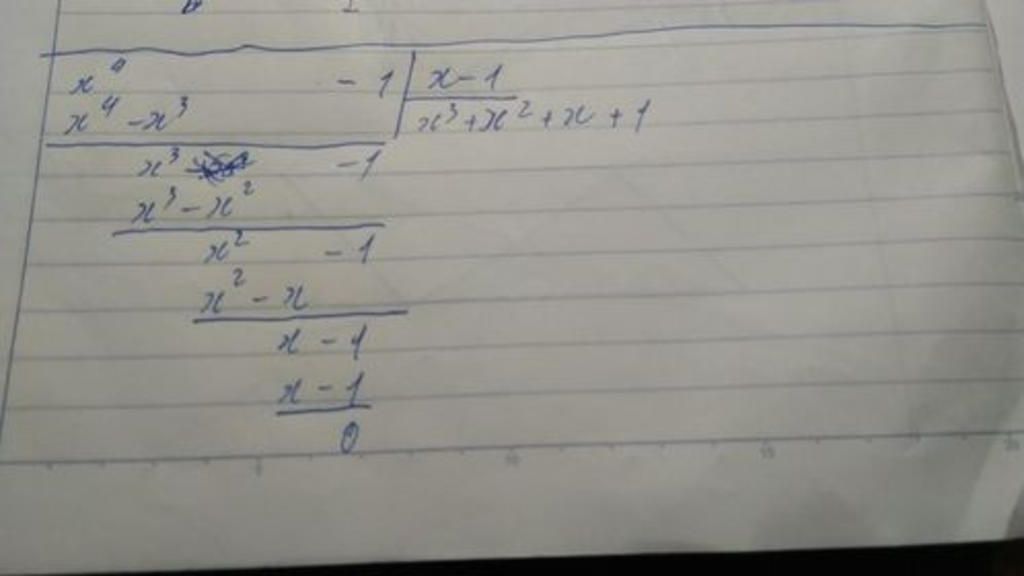 x⁴ - 1 | x - 1
x⁴ - x³ | x³ + x² + x + 1
x³ - 1
x³ - x²
x² - 1
x² - x
x - 1
x - 1
0